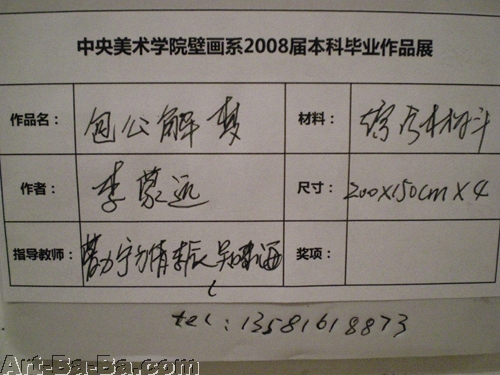 中央美术学院壁画系2008届本科毕业作品展
作品名： 包公解梦 材料： 综合材料
作者： 李蒙远 尺寸： 200X150cm X 4
指导教师： 奖项：
tel：13581618873
Art-Ba-Ba.com